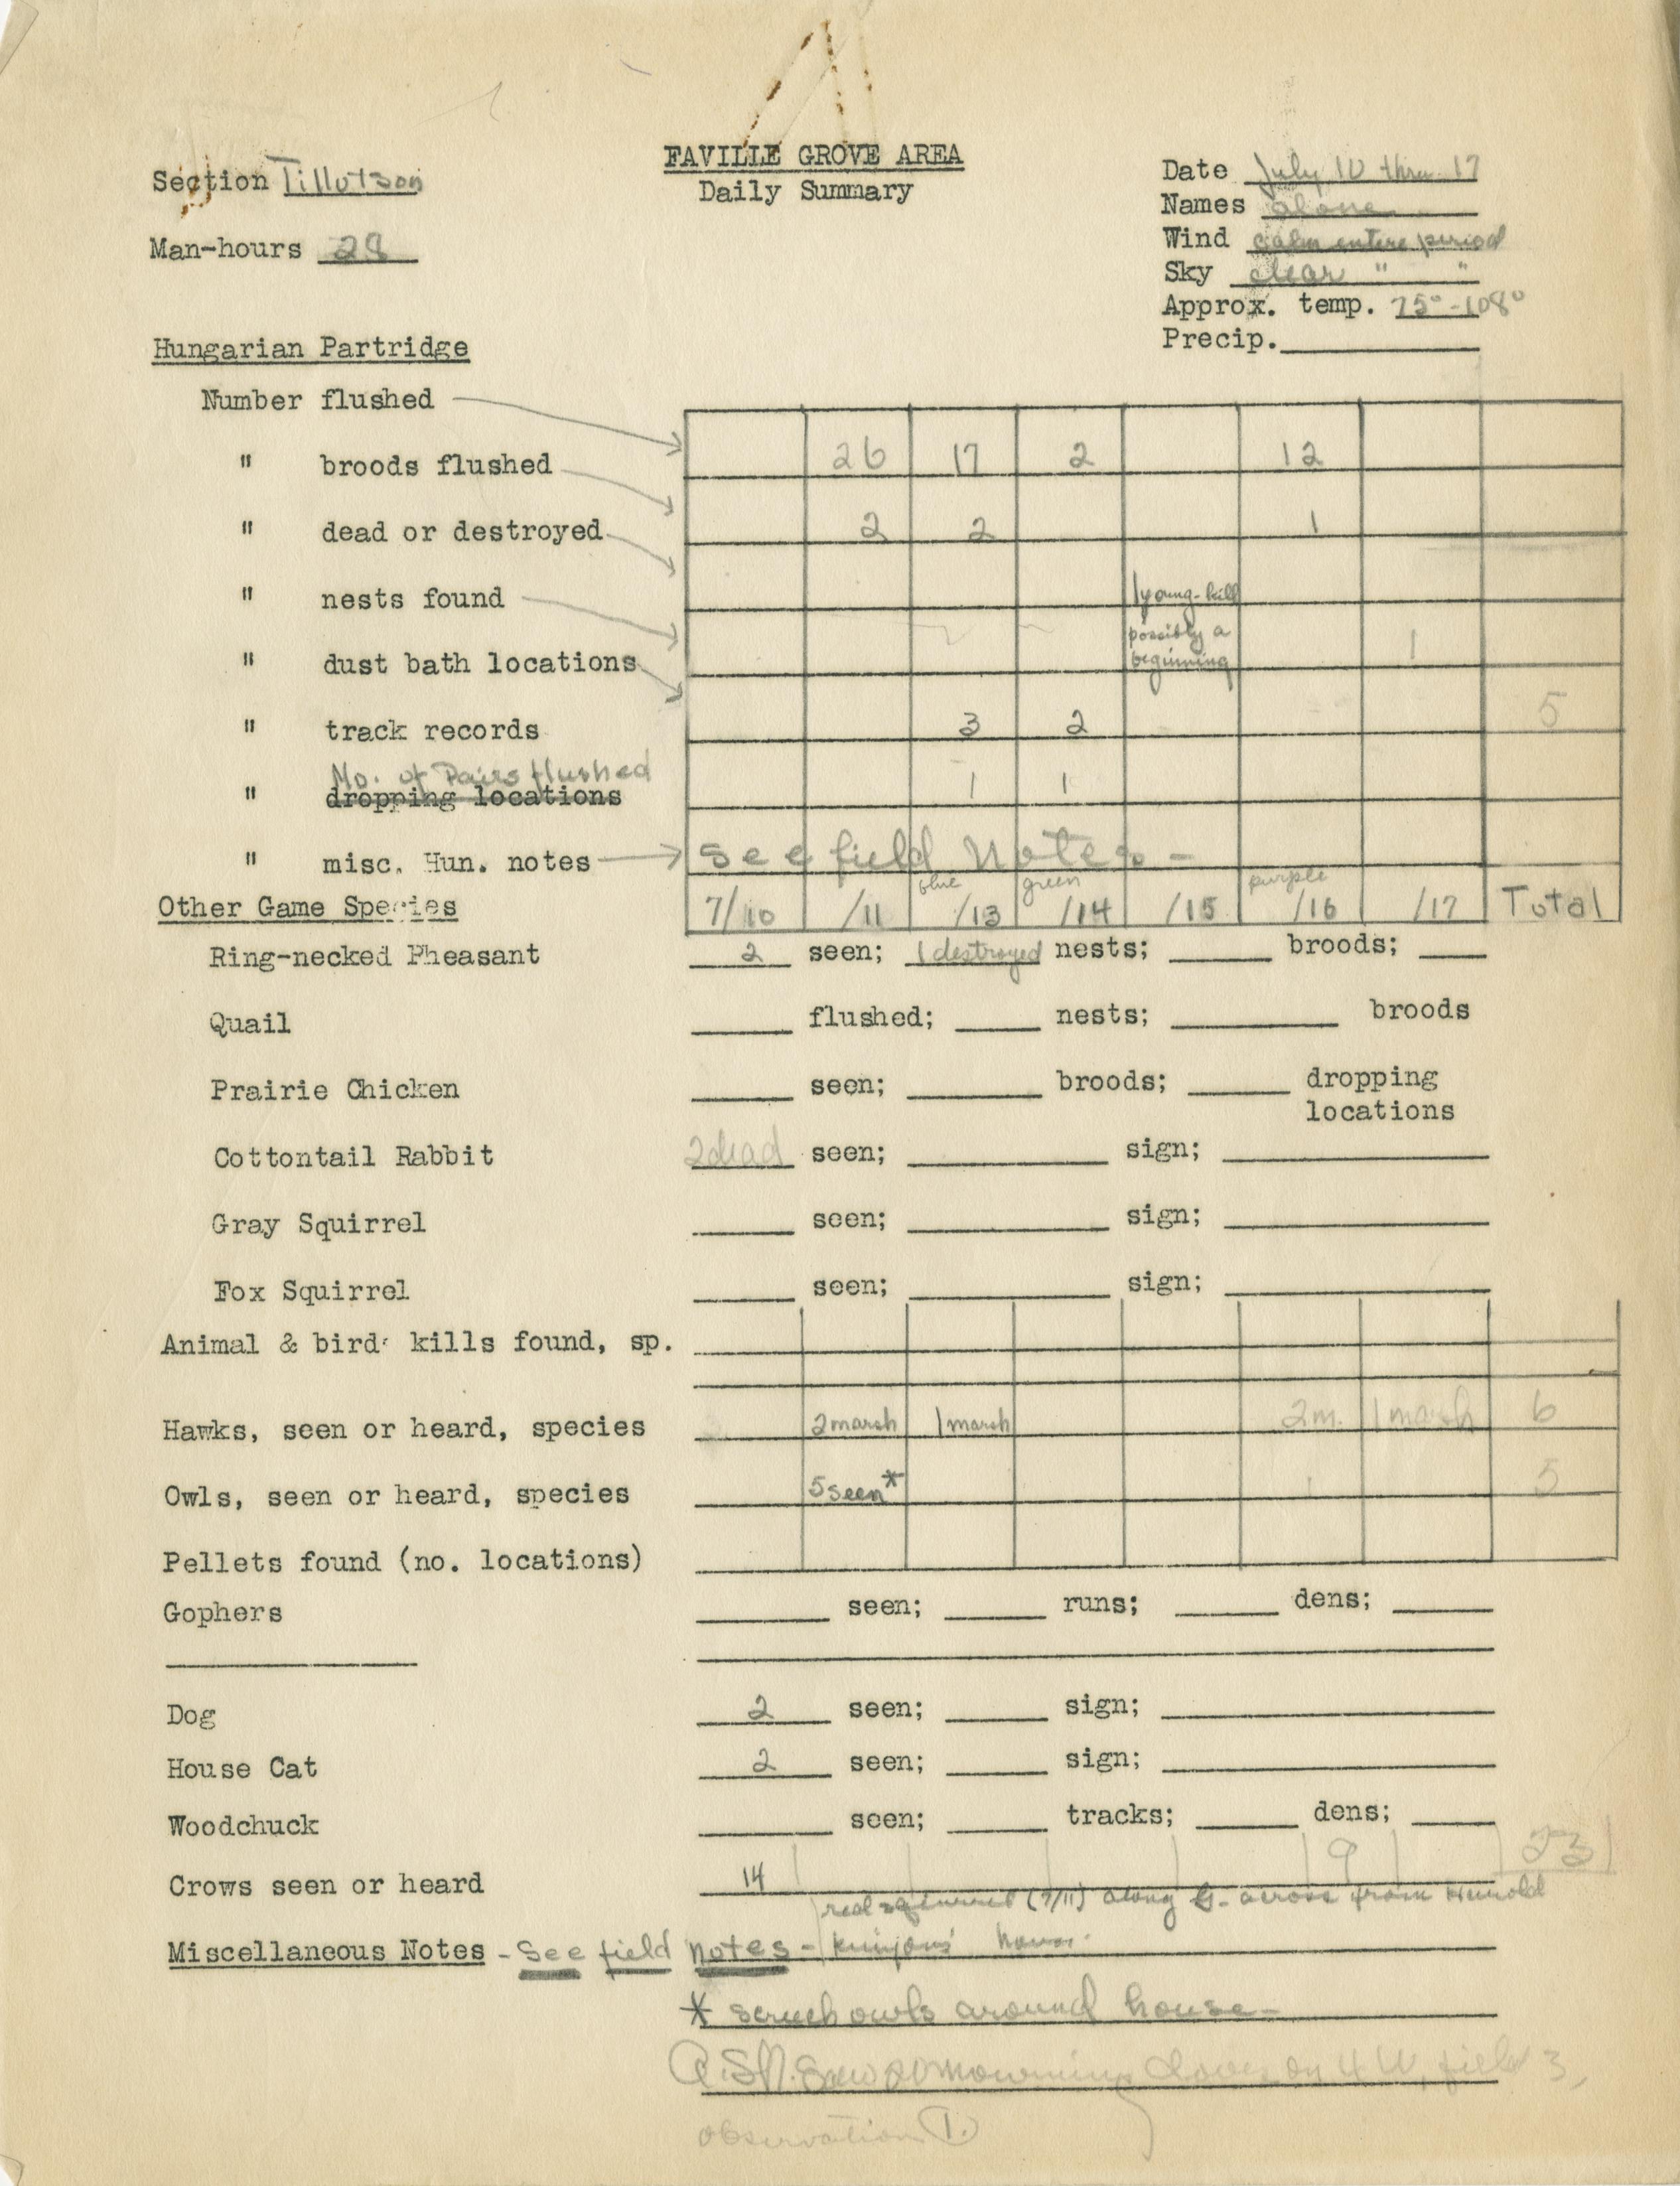 FAVILLE GROVE AREA
Daily Summary
Section Tillotson
Man-hours 28
Date July 10 thru 17
Names alone
Wind calm entire period
Sky clear " "
Approx. temp. 75° - 108°
Precip.
Hungarian Partridge
Number flushed
" broods flushed 26 17 2 12
" dead or destroyed 2 2 1
" nests found 1 young-kill
" dust bath locations possibly a beginning 1
" track records 3 2 5
No. of Pairs flushed 1 1
" dropping locations
" misc. Hun. notes See field Notes -
blue green purple
7/10 /11 /13 /14 /15 /16 /17 Total
Other Game Species
Ring-necked Pheasant 2 seen; 1 destroyed nests; broods;
Quail flushed; nests; broods
Prairie Chicken seen; broods; dropping locations
Cottontail Rabbit 2 dead seen; sign;
Gray Squirrel seen; sign;
Fox Squirrel seen; sign;
Animal & bird kills found, sp.
Hawks, seen or heard, species 2 marsh 1 marsh 2 m. 1 marsh 6
Owls, seen or heard, species 5 seen* 5
Pellets found (no. locations)
Gophers seen; runs; dens;
Dog 2 seen; sign;
House Cat 2 seen; sign;
Woodchuck seen; tracks; dens;
Crows seen or heard 14 9 23
red squirrel (7/11) along across from
Miscellaneous Notes - See field notes -
* screech owls around house -
saw mourning doves on 4 W, field 3,
observation 1.